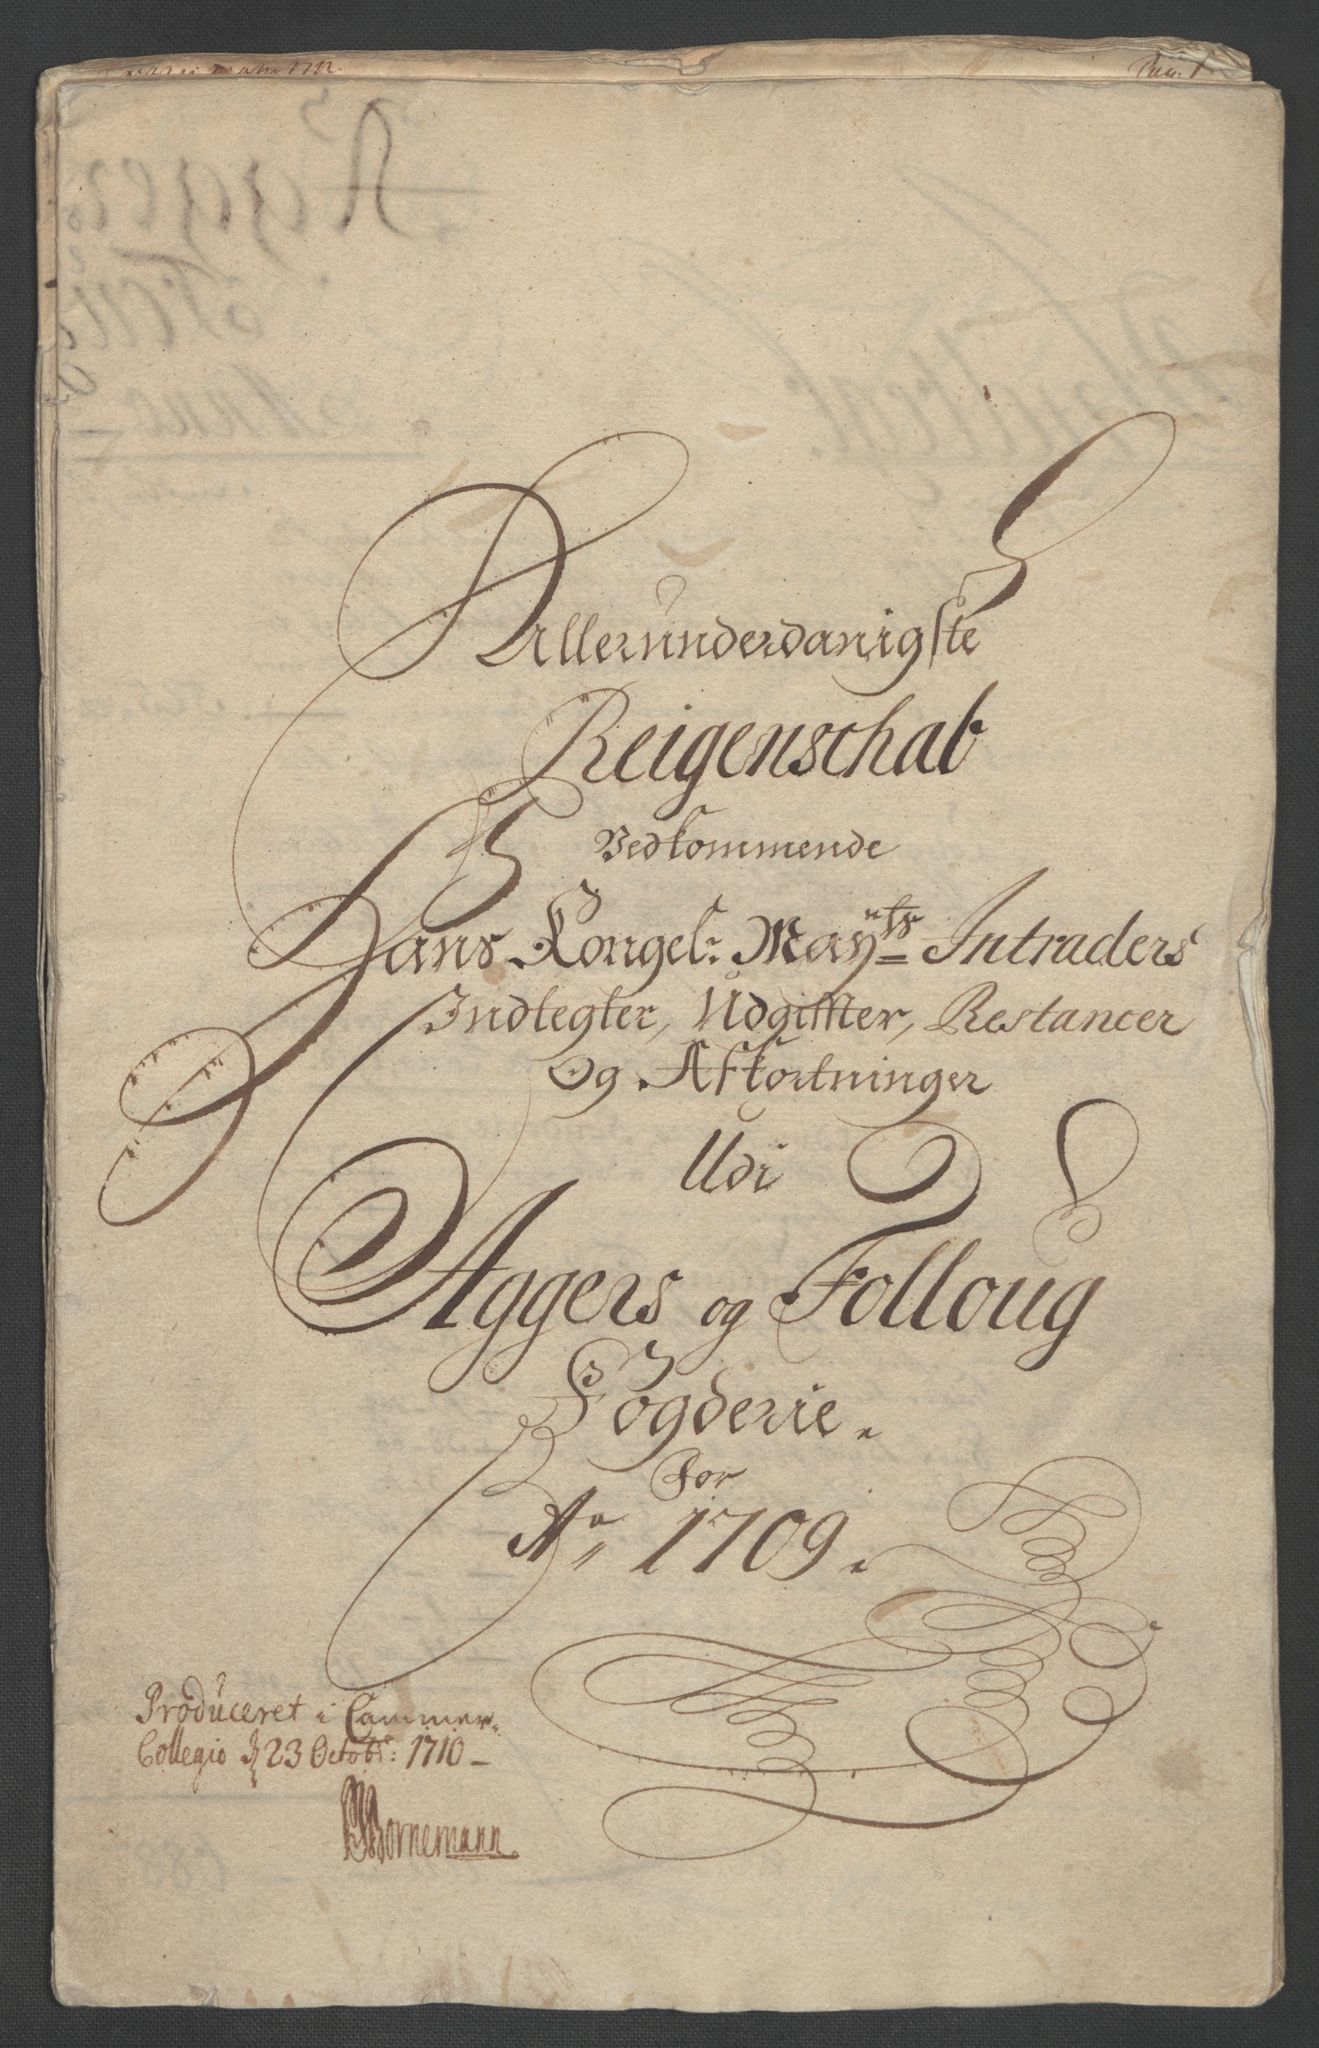 Allerunderdanigste
Reigenschab
Vedkommende
Hans Kongel: May:ts Intraders
Indtegter, Udgiffter, Restancer
Og Afkortninger
Udi
Aggers og Folloug
Fögderie.
For
Ao 1709.
Producert i Cammer-
Collegio d 23 Octobr: 1710
Bornemann